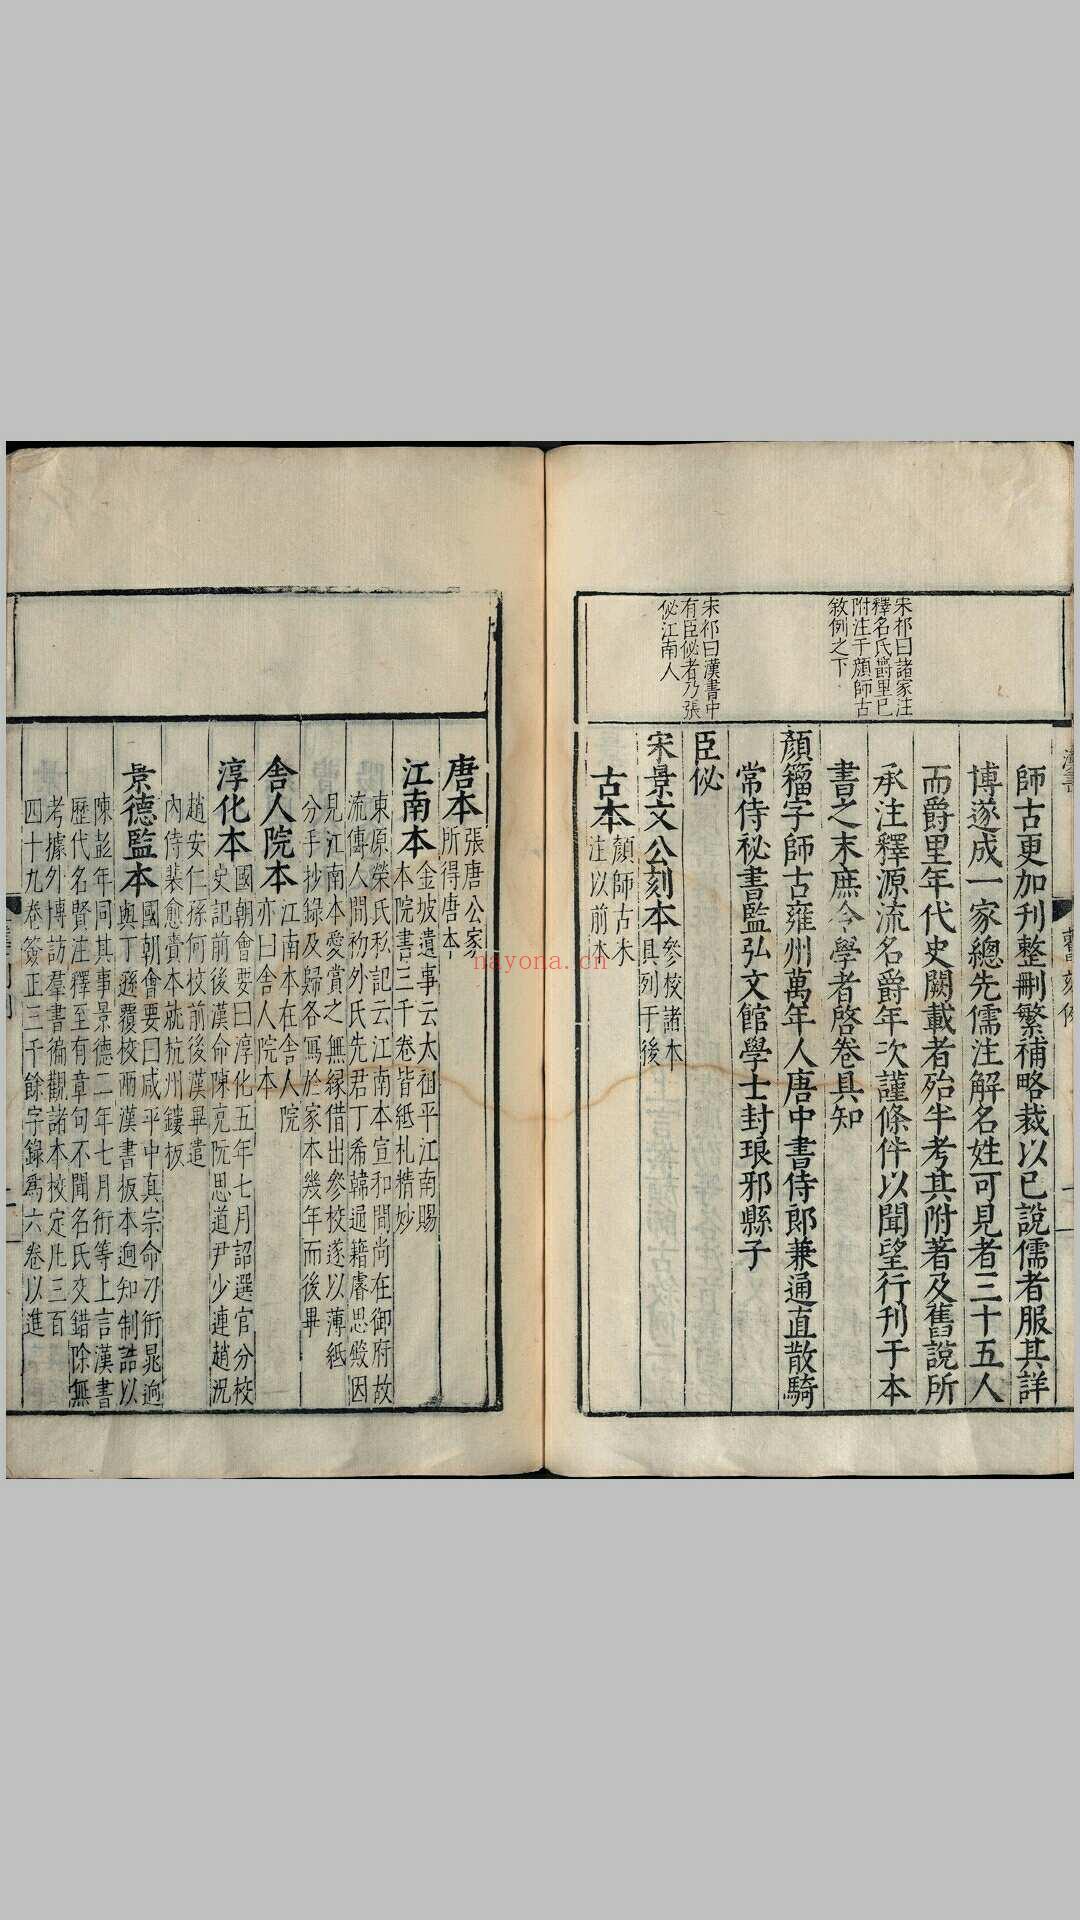 宋祁曰諸家注
釋名氏爵里已
附注于顔師古
敘例之下
宋祁曰漢書中
有臣佖者乃張
佖江南人
師古更加刊整刪繁補略裁以已說儒者服其詳
博遂成一家總先儒注解名姓可見者三十五人
而爵里年代史闕載者殆半考其附著及舊說所
承注釋源流名爵年次謹條件以聞望行刊于本
書之末庶令學者啓卷具知
顔籀字師古雍州萬年人唐中書侍郎兼通直散騎
常侍秘書監弘文館學士封琅邪縣子
臣佖
宋景文公刻本
參校諸本
具列于後
古本
顔師古未
注以前本
唐本
張唐公家
所得唐本
江南本
金坡遺事云太祖平江南賜
本院書三千卷皆紙札精妙
東原榮氏私記云江南本宣和間尚在御府故
流傳人間礿外氏先君丁希韓通籍睿思殿因
見江南本愛賞之無緣借出參校遂以薄紙
分手抄錄及歸各寫於家本幾年而後畢
舍人院本
江南本在舍人院
亦曰舍人院本
淳化本
國朝會要曰淳化五年七月詔選官分校
史記前後漢命陳充阮思道尹少連趙況
趙安仁孫何校前後漢畢遣
內侍裴愈賫本就杭州鏤板
景德監本
國朝會要曰咸平中真宗命刁衎晁迥
與丁遜覆校兩漢書板本迥知制誥以
陳彭年同其事景德二年七月衎等上言漢書
歷代名賢注釋至有章句不聞名氏交錯除無
考據外博訪羣書徧觀諸本校定凡三百
四十九卷簽正三千餘字錄爲六卷以進
nayona.cn